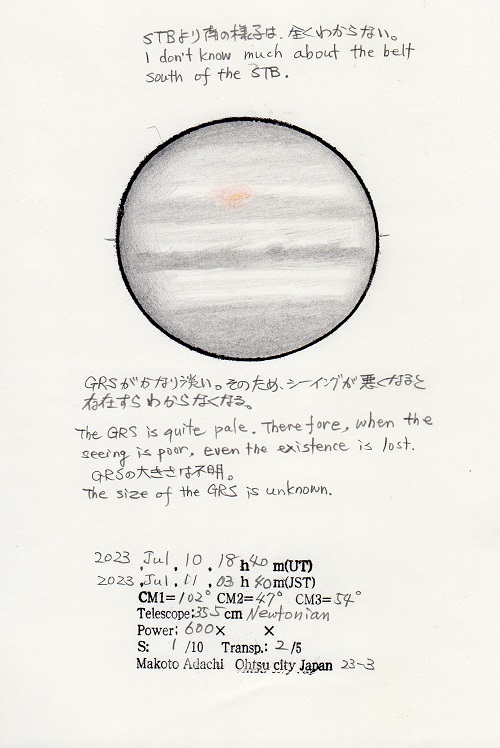 STBより南の様子は、全くわからない。
I don't know much about the belt
south of the STB.
GRSがかなり淡い。そのため、シーイングが悪くなると
存在すらわからなくなる。
The GRS is quite pale. Therefore, when the
seeing is poor, even the existence is lost.
GRSの大きさは不明。
The size of the GRS is unknown.
2023, Jul, 10, 18h40m(UT)
2023, Jul, 11, 03h40m(JST)
CM1=102° CM2=47° CM3=54°
Telescope:355cm Newtonian
Power; 600× ×
S: 1/10 Transp.: 2/5
Makoto Adachi Ohtsu city Japan 23-3